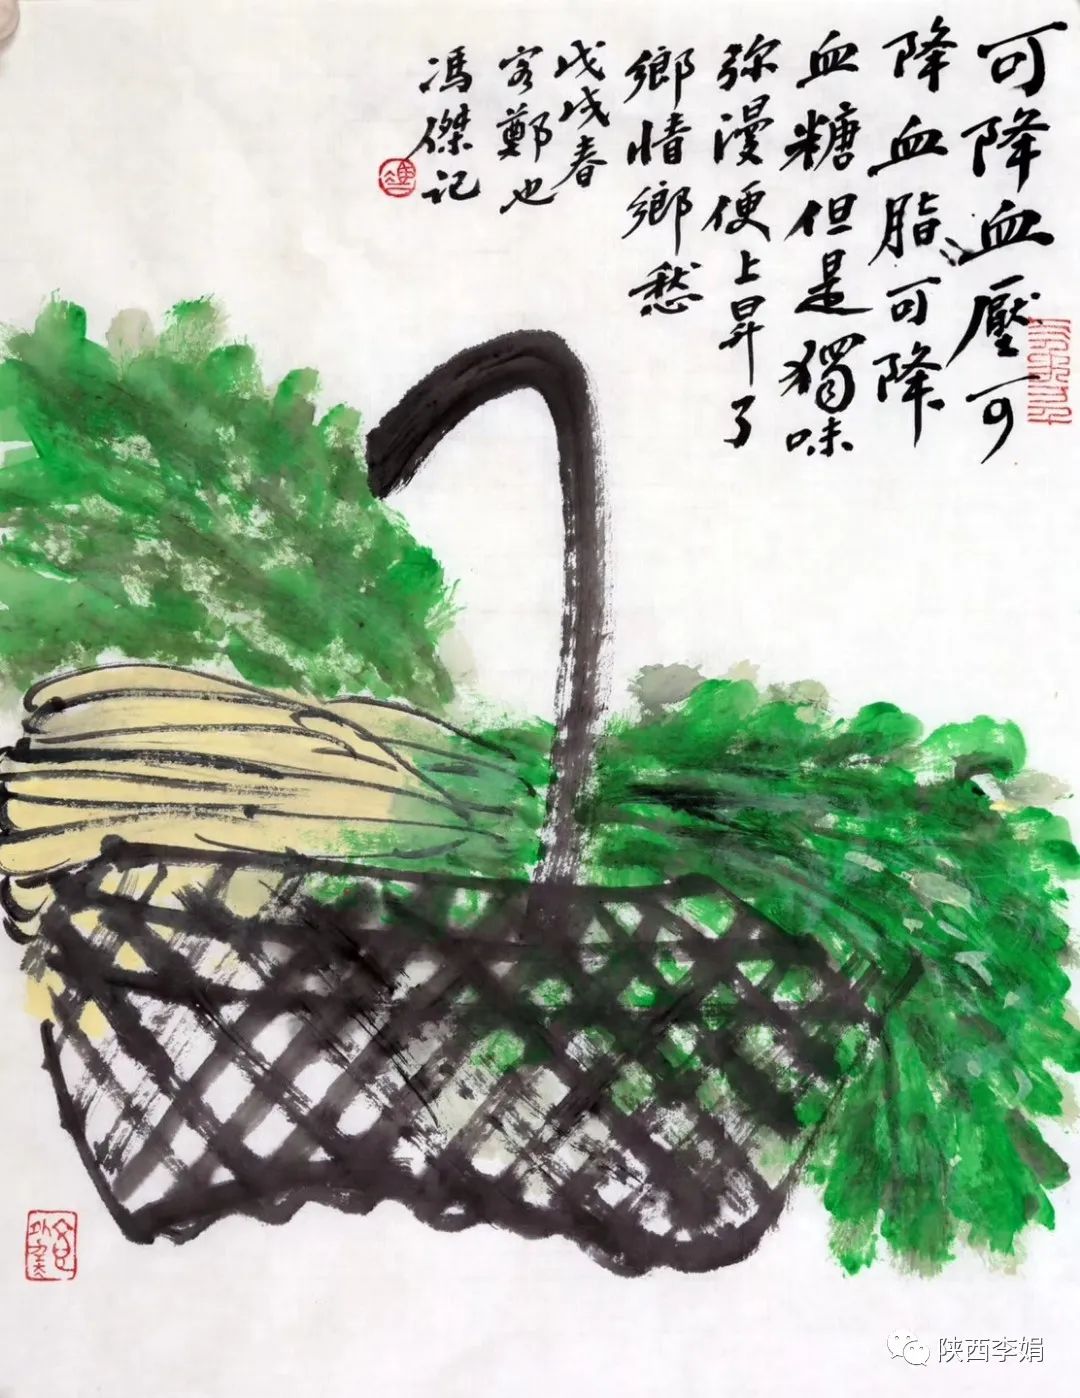 可降血壓可
降血脂可降
血糖但是獨味
弥漫便上昇了
鄉情鄉愁
戊戌春
客鄭也
馮傑記
陕西李娟